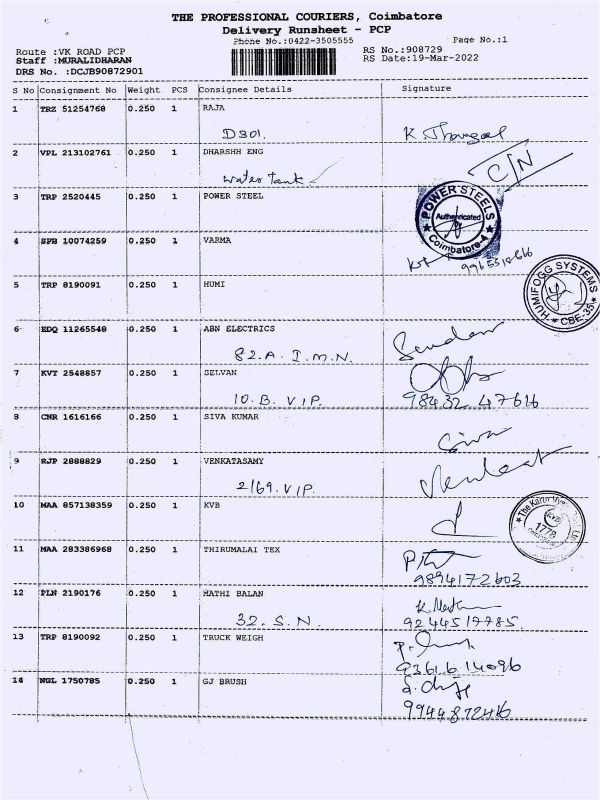 THE PROFESSIONAL COURIERS, Coimbatore
Delivery Runsheet - PCP
Phone No.:0422-3505555 Page No.:1
Route :VK ROAD PCP RS No.:908729
Staff :MURALIDHARAN RS Date:19-Mar-2022
DRS No. :DCJB90872901
S No Consignment No Weight PCS Consignee Details Signature
1 TRZ 51254768 0.250 1 RAJA
D301. K. Thangal
2 VPL 213102761 0.250 1 DHARSHH ENG
water tank C/N
3 TRP 2520445 0.250 1 POWER STEEL
POWER STEELS
Authenticated
Coimbatore-4
4 SPB 10074259 0.250 1 VARMA
5 TRP 8190091 0.250 1 HUMI
HUMIFOGG SYSTEMS
CBE-35
6 EDQ 11265548 0.250 1 ABN ELECTRICS
82.A. I.M.N.
7 KVT 2548857 0.250 1 SELVAN
10.B. VIP. 98432 47616
8 CNR 1616166 0.250 1 SIVA KUMAR
Siva
9 RJP 2888829 0.250 1 VENKATASAMY
2/69.VIP. Venkat
10 MAA 857138359 0.250 1 KVB
The Karur
1778
11 MAA 283386968 0.250 1 THIRUMALAI TEX
9894172603
12 PLN 2190176 0.250 1 MATHI BALAN
32. S.N. 9244517785.
13 TRP 8190092 0.250 1 TRUCK WEIGH
9361614096
14 NGL 1750785 0.250 1 GJ BRUSH
9944872416